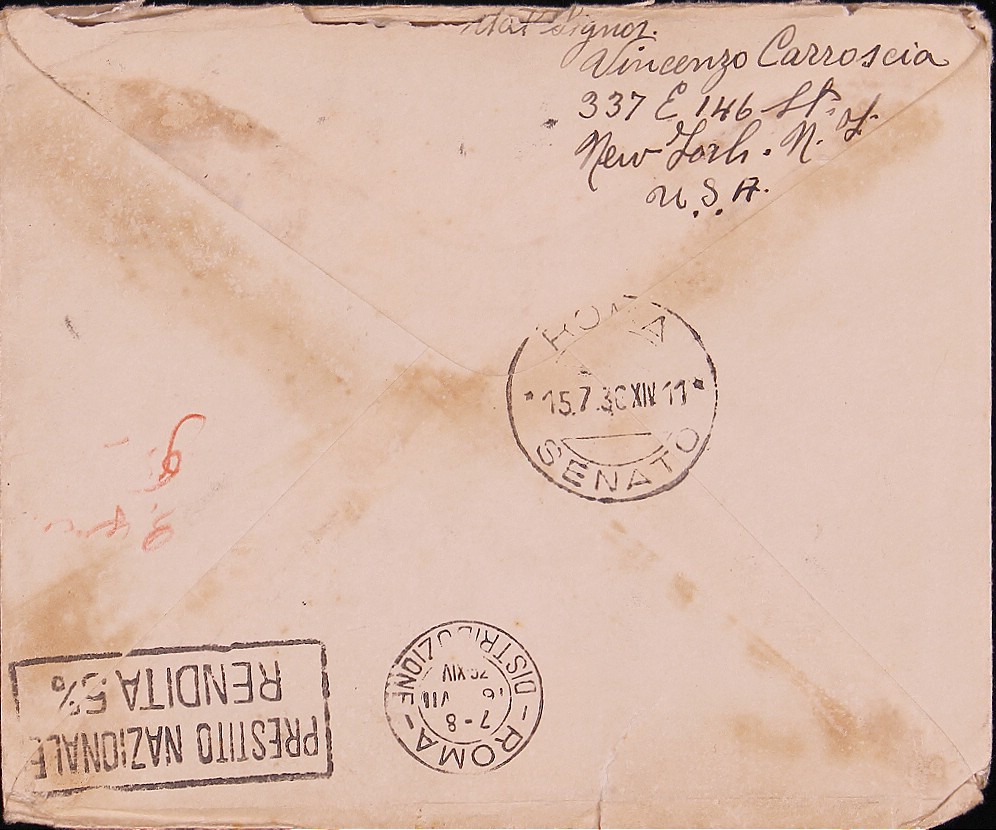 dal Signor.
Vincenzo Carroscia
337 E 146 St.
New York. N. Y.
U.S.A.
ROMA
*15.7.36 XIV 11*
SENATO
PRESTITO NAZIONALE
RENDITA 5%
-ROMA-
7-8
VII
XIV
DISTRIBUZIONE